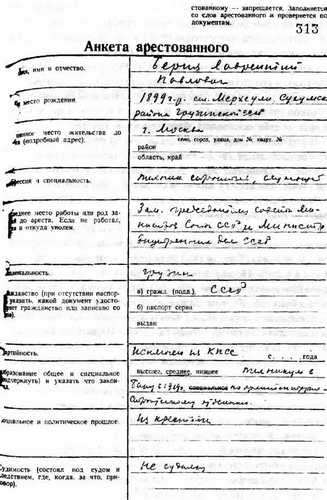 стованному — запрещается. Заполняется
со слов арестованного и проверяется по
документам.
313
Анкета арестованного
имя и отчество.
Берия Лаврентий
Павлович
место рождения.
1899 г.р. сел. Мерхеули, Сухумск
района Грузинской ССР
место жительства до
(подробный адрес).
г. Москва
село, город, улица, дом № кварт. №
район
область, край
и специальность.
техник строитель, служащий
место работы или род за-
до ареста. Если не работал,
и откуда уволен.
Зам. председателя совета Ми-
нистров Союза ССР и Министр
внутренних дел СССР
грузин
(при отсутствии паспор-
указать, какой документ удосто-
гражданство или записано со
а) гражд. (подд.) СССР
б) паспорт серия
выдан
Исключен из КПСС с . . . . года
общее и специальное
и указать что
высшее, среднее, низшее техникум в
Баку в 1919 г. специальное
строительному
и политическое прошлое.
Из крестьян
(состоял под судом и
следствием, где, когда, за что,
Не судился